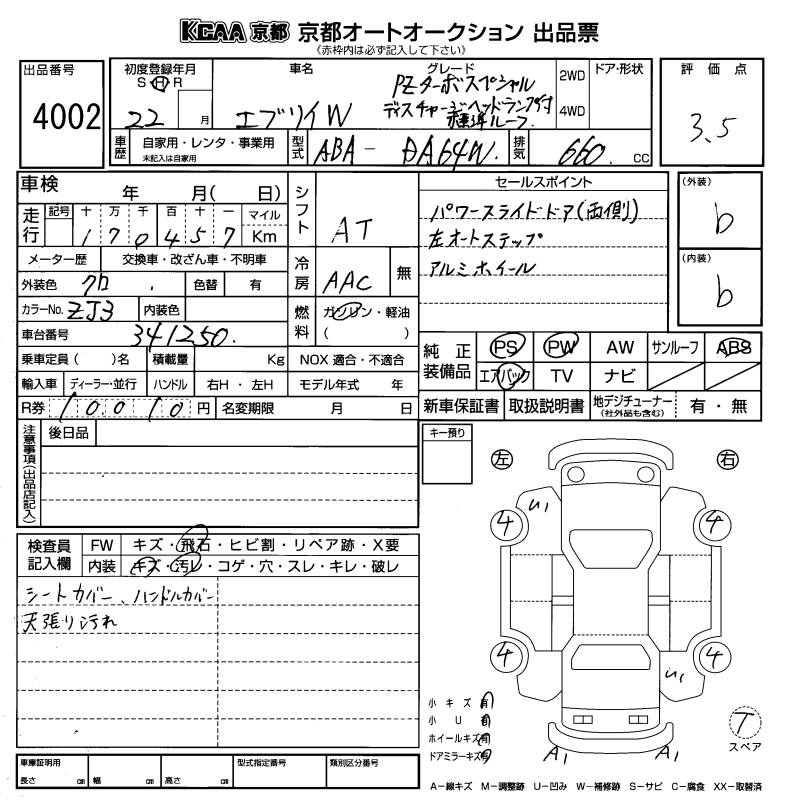 KCAA 京都 京都オートオークション 出品票
《赤枠内は必ず記入して下さい》
出品番号
4002
初度登録年月
S H R
22 月
車名
エブリイW
グレード
PZターボスペシャル
ディスチャージヘッドランプ付
標準ルーフ
2WD
4WD
ドア・形状
評価点
3.5
車歴
自家用・レンタ・事業用
未記入は自家用
型式
ABA - DA64W
排気
660 cc
車検 年 月( 日)
走行
記号 十 万 千 百 十 一 マイル
1 7 0 4 5 7 Km
メーター歴 交換車・改ざん車・不明車
外装色 クロ 色替 有
カラーNo. ZJ3 内装色
車台番号 341250
乗車定員 ( )名 積載量 Kg
輸入車 ディーラー・並行 ハンドル 右H・左H
R券 10010 円 名変期限 月 日
シフト AT
冷房 AAC 無
燃料 ガソリン・軽油
( )
NOX 適合・不適合
モデル年式 年
セールスポイント
パワースライドドア(両側)
左オートステップ
アルミホイール
(外装)
b
(内装)
b
純正装備品
PS PW AW サンルーフ ABS
エアバック TV ナビ
新車保証書 取扱説明書 地デジチューナー
(社外品も含む)
有・無
注意事項(出品店記入)
後日品
キー預り
検査員記入欄
FW キズ・飛石・ヒビ割・リペア跡・X要
内装 キズ・汚レ・コゲ・穴・スレ・キレ・破レ
シートカバー、ハンドルカバー
天張り汚れ
左 右
U1
4 4
4 4
U1
A1 A1
小キズ 有
小U 有
ホイールキズ 有
ドアミラーキズ 有
T
スペア
車庫証明用
長さ cm 幅 cm 高さ cm
型式指定番号
類別区分番号
A-線キズ M-調整跡 U-凹み W-補修跡 S-サビ C-腐食 XX-取替済